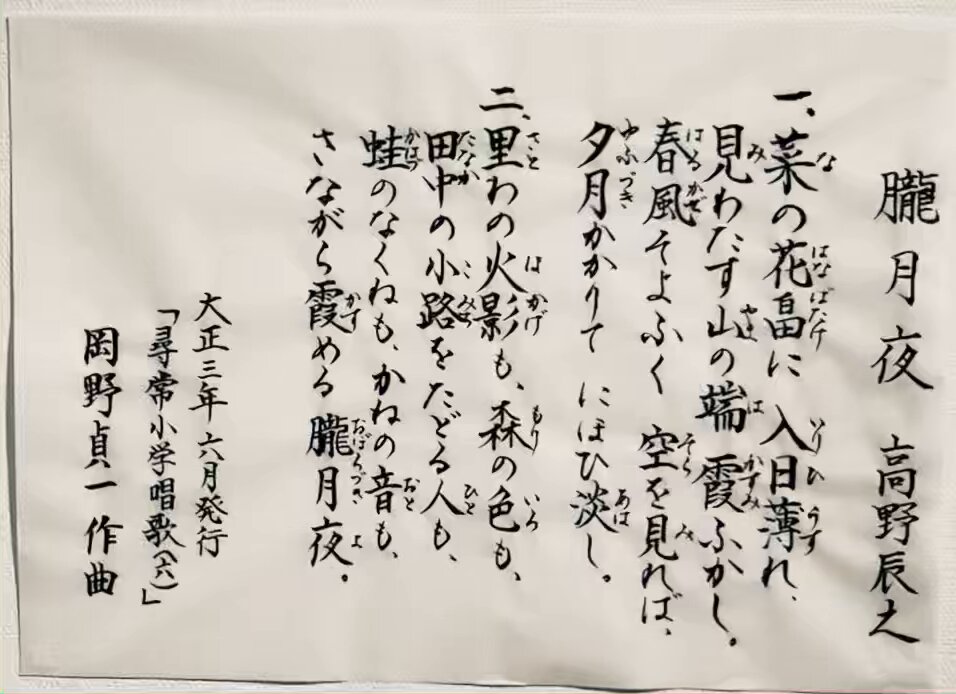 朧月夜 高野辰之
一、菜の花畠に 入日薄れ、
見わたす山の端 霞ふかし。
春風そよふく 空を見れば、
夕月かかりて にほひ淡し。
二、里わの火影も、森の色も、
田中の小路をたどる人も、
蛙のなくねも、かねの音も、
さながら霞める 朧月夜。
大正三年六月発行
「尋常小学唱歌(六)」
岡野貞一 作曲